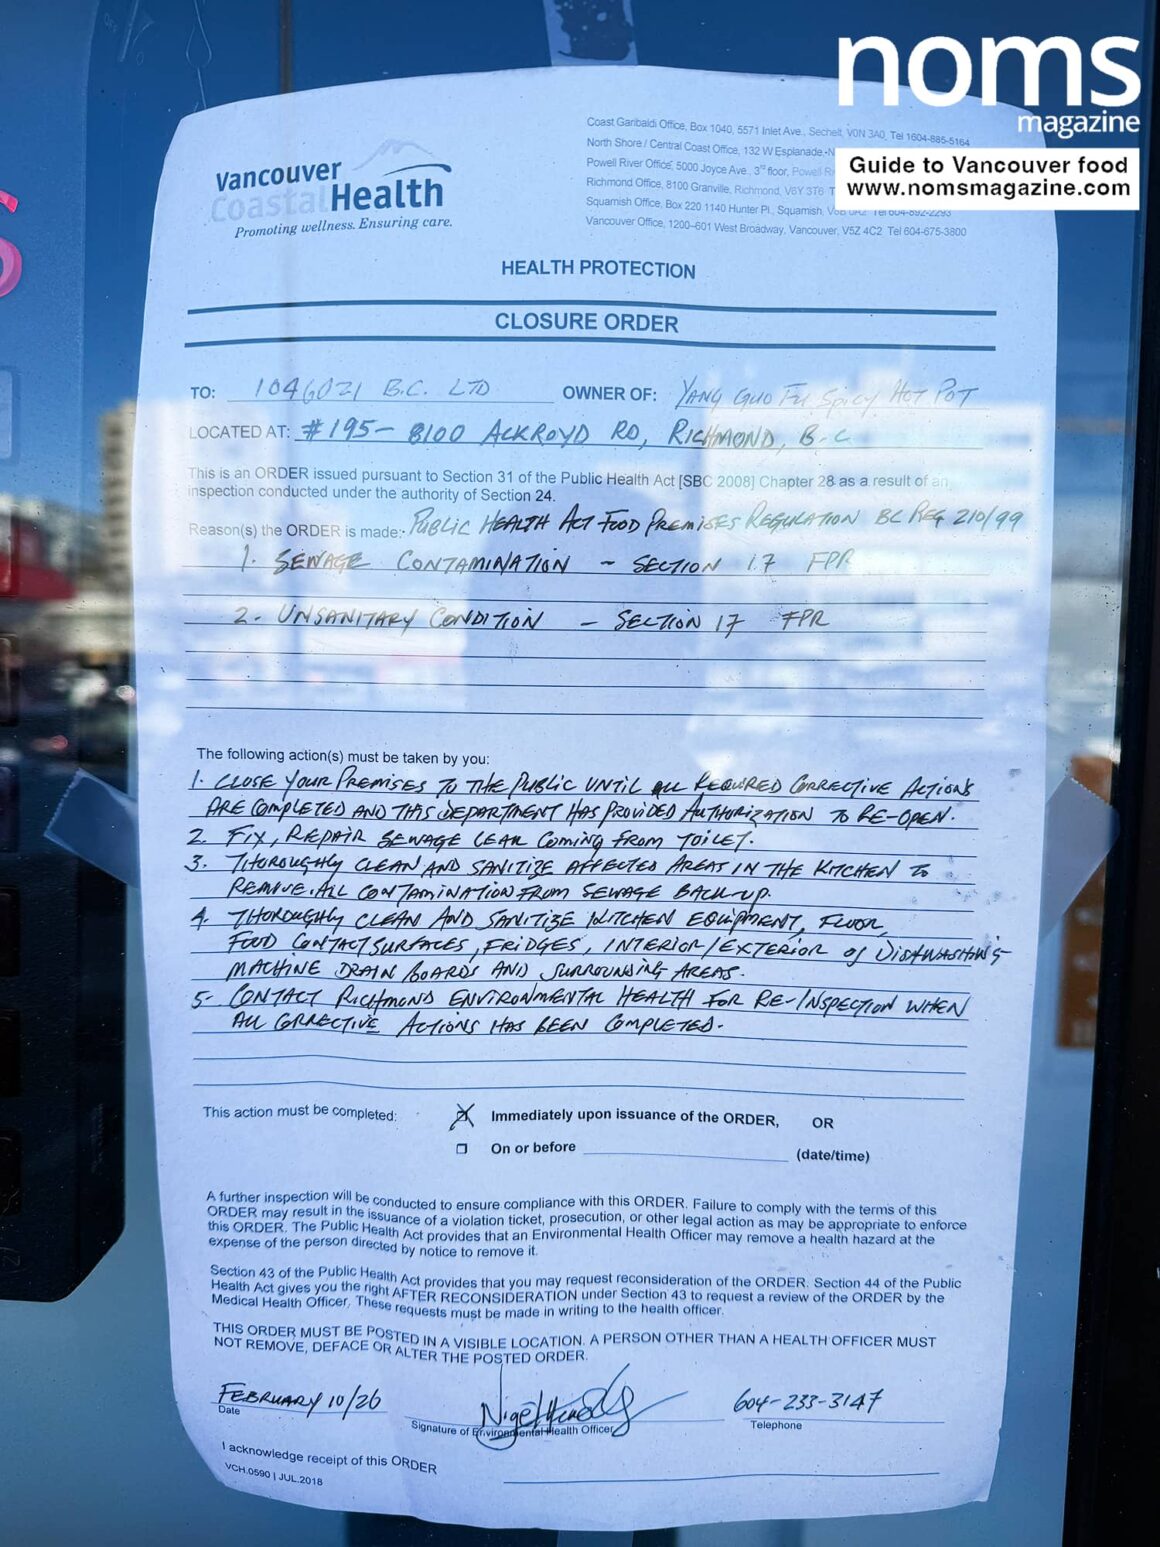 noms
magazine
Guide to Vancouver food
www.nomsmagazine.com
Vancouver
CoastalHealth
Promoting wellness. Ensuring care.
Coast Garibaldi Office, Box 1040, 5571 Inlet Ave., Sechelt, V0N 3A0, Tel 1604-885-5164
North Shore / Central Coast Office, 132 W Esplanade,
Powell River Office, 5000 Joyce Ave., 3rd floor, Powell
Richmond Office, 8100 Granville, Richmond, V6Y 3T6
Squamish Office, Box 220 1140 Hunter Pl., Squamish, Tel 604-892-2293
Vancouver Office, 1200-601 West Broadway, Vancouver, V5Z 4C2 Tel 604-675-3800
HEALTH PROTECTION
CLOSURE ORDER
TO: 1046021 B.C. LTD OWNER OF: YANG GUO FU SPICY HOT POT
LOCATED AT: #195- 8100 ACKROYD RD, RICHMOND, B.C
This is an ORDER issued pursuant to Section 31 of the Public Health Act [SBC 2008] Chapter 28 as a result of an
inspection conducted under the authority of Section 24.
Reason(s) the ORDER is made:- PUBLIC HEALTH ACT FOOD PREMISES REGULATION BC REG 210/99
1. SEWAGE CONTAMINATION - SECTION 17 FPR
2. UNSANITARY CONDITION - SECTION 17 FPR
The following action(s) must be taken by you:
1. CLOSE YOUR PREMISES TO THE PUBLIC UNTIL ALL REQUIRED CORRECTIVE ACTIONS
ARE COMPLETED AND THIS DEPARTMENT HAS PROVIDED AUTHORIZATION TO RE-OPEN.
2. FIX, REPAIR SEWAGE LEAK COMING FROM TOILET.
3. THOROUGHLY CLEAN AND SANITIZE AFFECTED AREAS IN THE KITCHEN TO
REMOVE ALL CONTAMINATION FROM SEWAGE BACK-UP.
4. THOROUGHLY CLEAN AND SANITIZE KITCHEN EQUIPMENT, FLOOR,
FOOD CONTACT SURFACES, FRIDGES, INTERIOR/EXTERIOR OF DISHWASHING
MACHINE DRAIN BOARDS AND SURROUNDING AREAS.
5- CONTACT RICHMOND ENVIRONMENTAL HEALTH FOR RE-INSPECTION WHEN
ALL CORRECTIVE ACTIONS HAS BEEN COMPLETED.
This action must be completed: Immediately upon issuance of the ORDER, OR
On or before (date/time)
A further inspection will be conducted to ensure compliance with this ORDER. Failure to comply with the terms of this
ORDER may result in the issuance of a violation ticket, prosecution, or other legal action as may be appropriate to enforce
this ORDER. The Public Health Act provides that an Environmental Health Officer may remove a health hazard at the
expense of the person directed by notice to remove it.
Section 43 of the Public Health Act provides that you may request reconsideration of the ORDER. Section 44 of the Public
Health Act gives you the right AFTER RECONSIDERATION under Section 43 to request a review of the ORDER by the
Medical Health Officer. These requests must be made in writing to the health officer.
THIS ORDER MUST BE POSTED IN A VISIBLE LOCATION. A PERSON OTHER THAN A HEALTH OFFICER MUST
NOT REMOVE, DEFACE OR ALTER THE POSTED ORDER.
FEBRUARY 10/26 Nigel 604-233-3147
Date Signature of Environmental Health Officer Telephone
I acknowledge receipt of this ORDER
VCH.0590 | JUL.2018